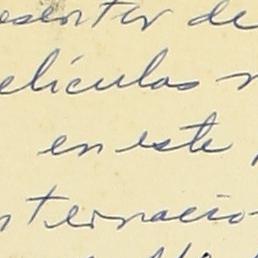 esentar de
elículas
en este
nternacio